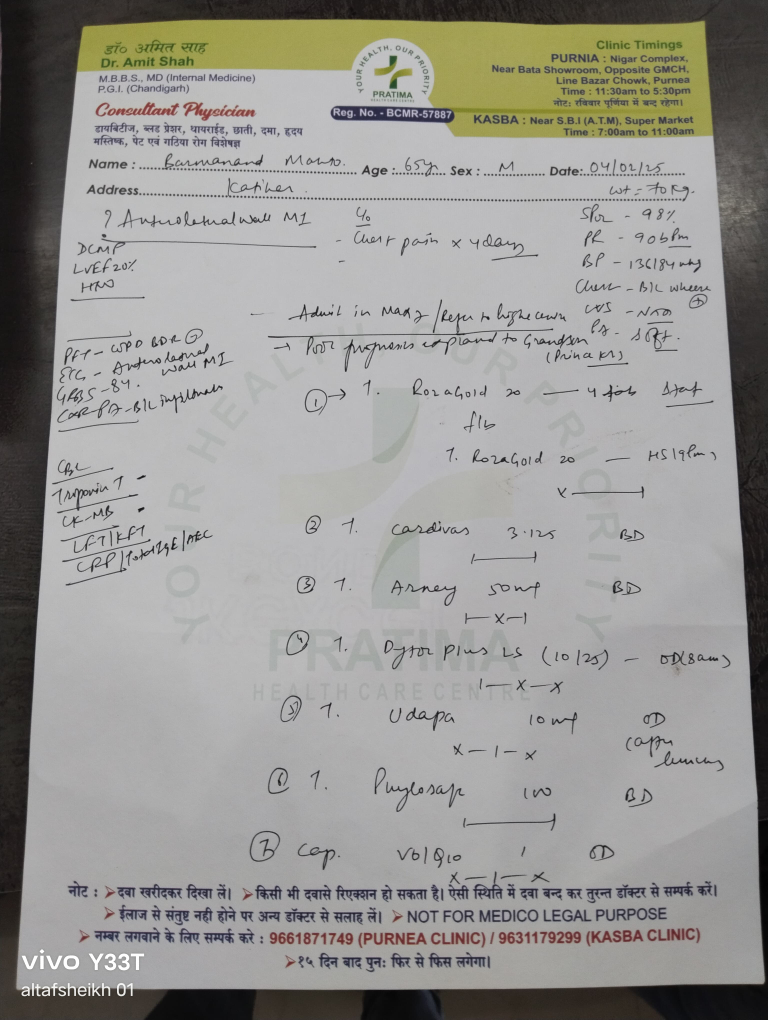 डॉ० अमित साह
Dr. Amit Shah
M.B.B.S., MD (Internal Medicine)
P.G.I. (Chandigarh)
Consultant Physician
डायबिटीज, ब्लड प्रेशर, थायराईड, छाती, दमा, हृदय
मस्तिष्क, पेट एवं गठिया रोग विशेषज्ञ
YOUR HEALTH, OUR PRIORITY
PRATIMA
HEALTH CARE CENTRE
Reg. No. - BCMR-57887
Clinic Timings
PURNIA : Nigar Complex,
Near Bata Showroom, Opposite GMCH,
Line Bazar Chowk, Purnea
Time : 11:30am to 5:30pm
नोट: रविवार पूर्णिया में बन्द रहेगा।
KASBA : Near S.B.I (A.T.M), Super Market
Time : 7:00am to 11:00am
Name : Barmanand Age : 65yr Sex : M Date: 04/02/25
Address. Katihar wt = 70 Kg.
? Anterolateral wall MI
DCMP
LVEF 20%
C/o
- Chest pain x 4 days
SPO2 - 98%
PR - 90 bpm
BP - 136/84 mmHg
Chest - B/L wheeze +
CVS - NAD
PA - Soft
- Admit in /Refer to higher
→ Poor prognosis explained to Grandson
PFT - COPD BDR
ECG - Anterolateral
wall MI
- 84
① → T. RozaGold 20 — 4 tab Stat
f/b
T. RozaGold 20 — HS (9pm)
x
CBC
Troponin T -
CK-MB -
LFT/KFT
CRP/Total IgE/AEC
② T. Cardivas 3.125 BD
③ T. Arney 50mg BD
④ T. Dytor Plus LS (10/25) - OD (8am)
1 - x - x
⑤ T. Udapa 10mg OD
x - 1 - x
⑥ T. Phylosap 100 BD
⑦ Cap. Vo/Q10 1 OD
x - 1 - x
YOUR HEALTH, OUR PRIORITY
PRATIMA
HEALTH CARE CENTRE
नोट : ➢ दवा खरीदकर दिखा लें। ➢ किसी भी दवासे रिएक्शन हो सकता है। ऐसी स्थिति में दवा बन्द कर तुरन्त डॉक्टर से सम्पर्क करें।
➢ ईलाज से संतुष्ट नही होने पर अन्य डॉक्टर से सलाह लें। ➢ NOT FOR MEDICO LEGAL PURPOSE
➢ नम्बर लगवाने के लिए सम्पर्क करे : 9661871749 (PURNEA CLINIC) / 9631179299 (KASBA CLINIC)
➢ १५ दिन बाद पुन: फिर से फिस लगेगा।
vivo Y33T
altafsheikh 01